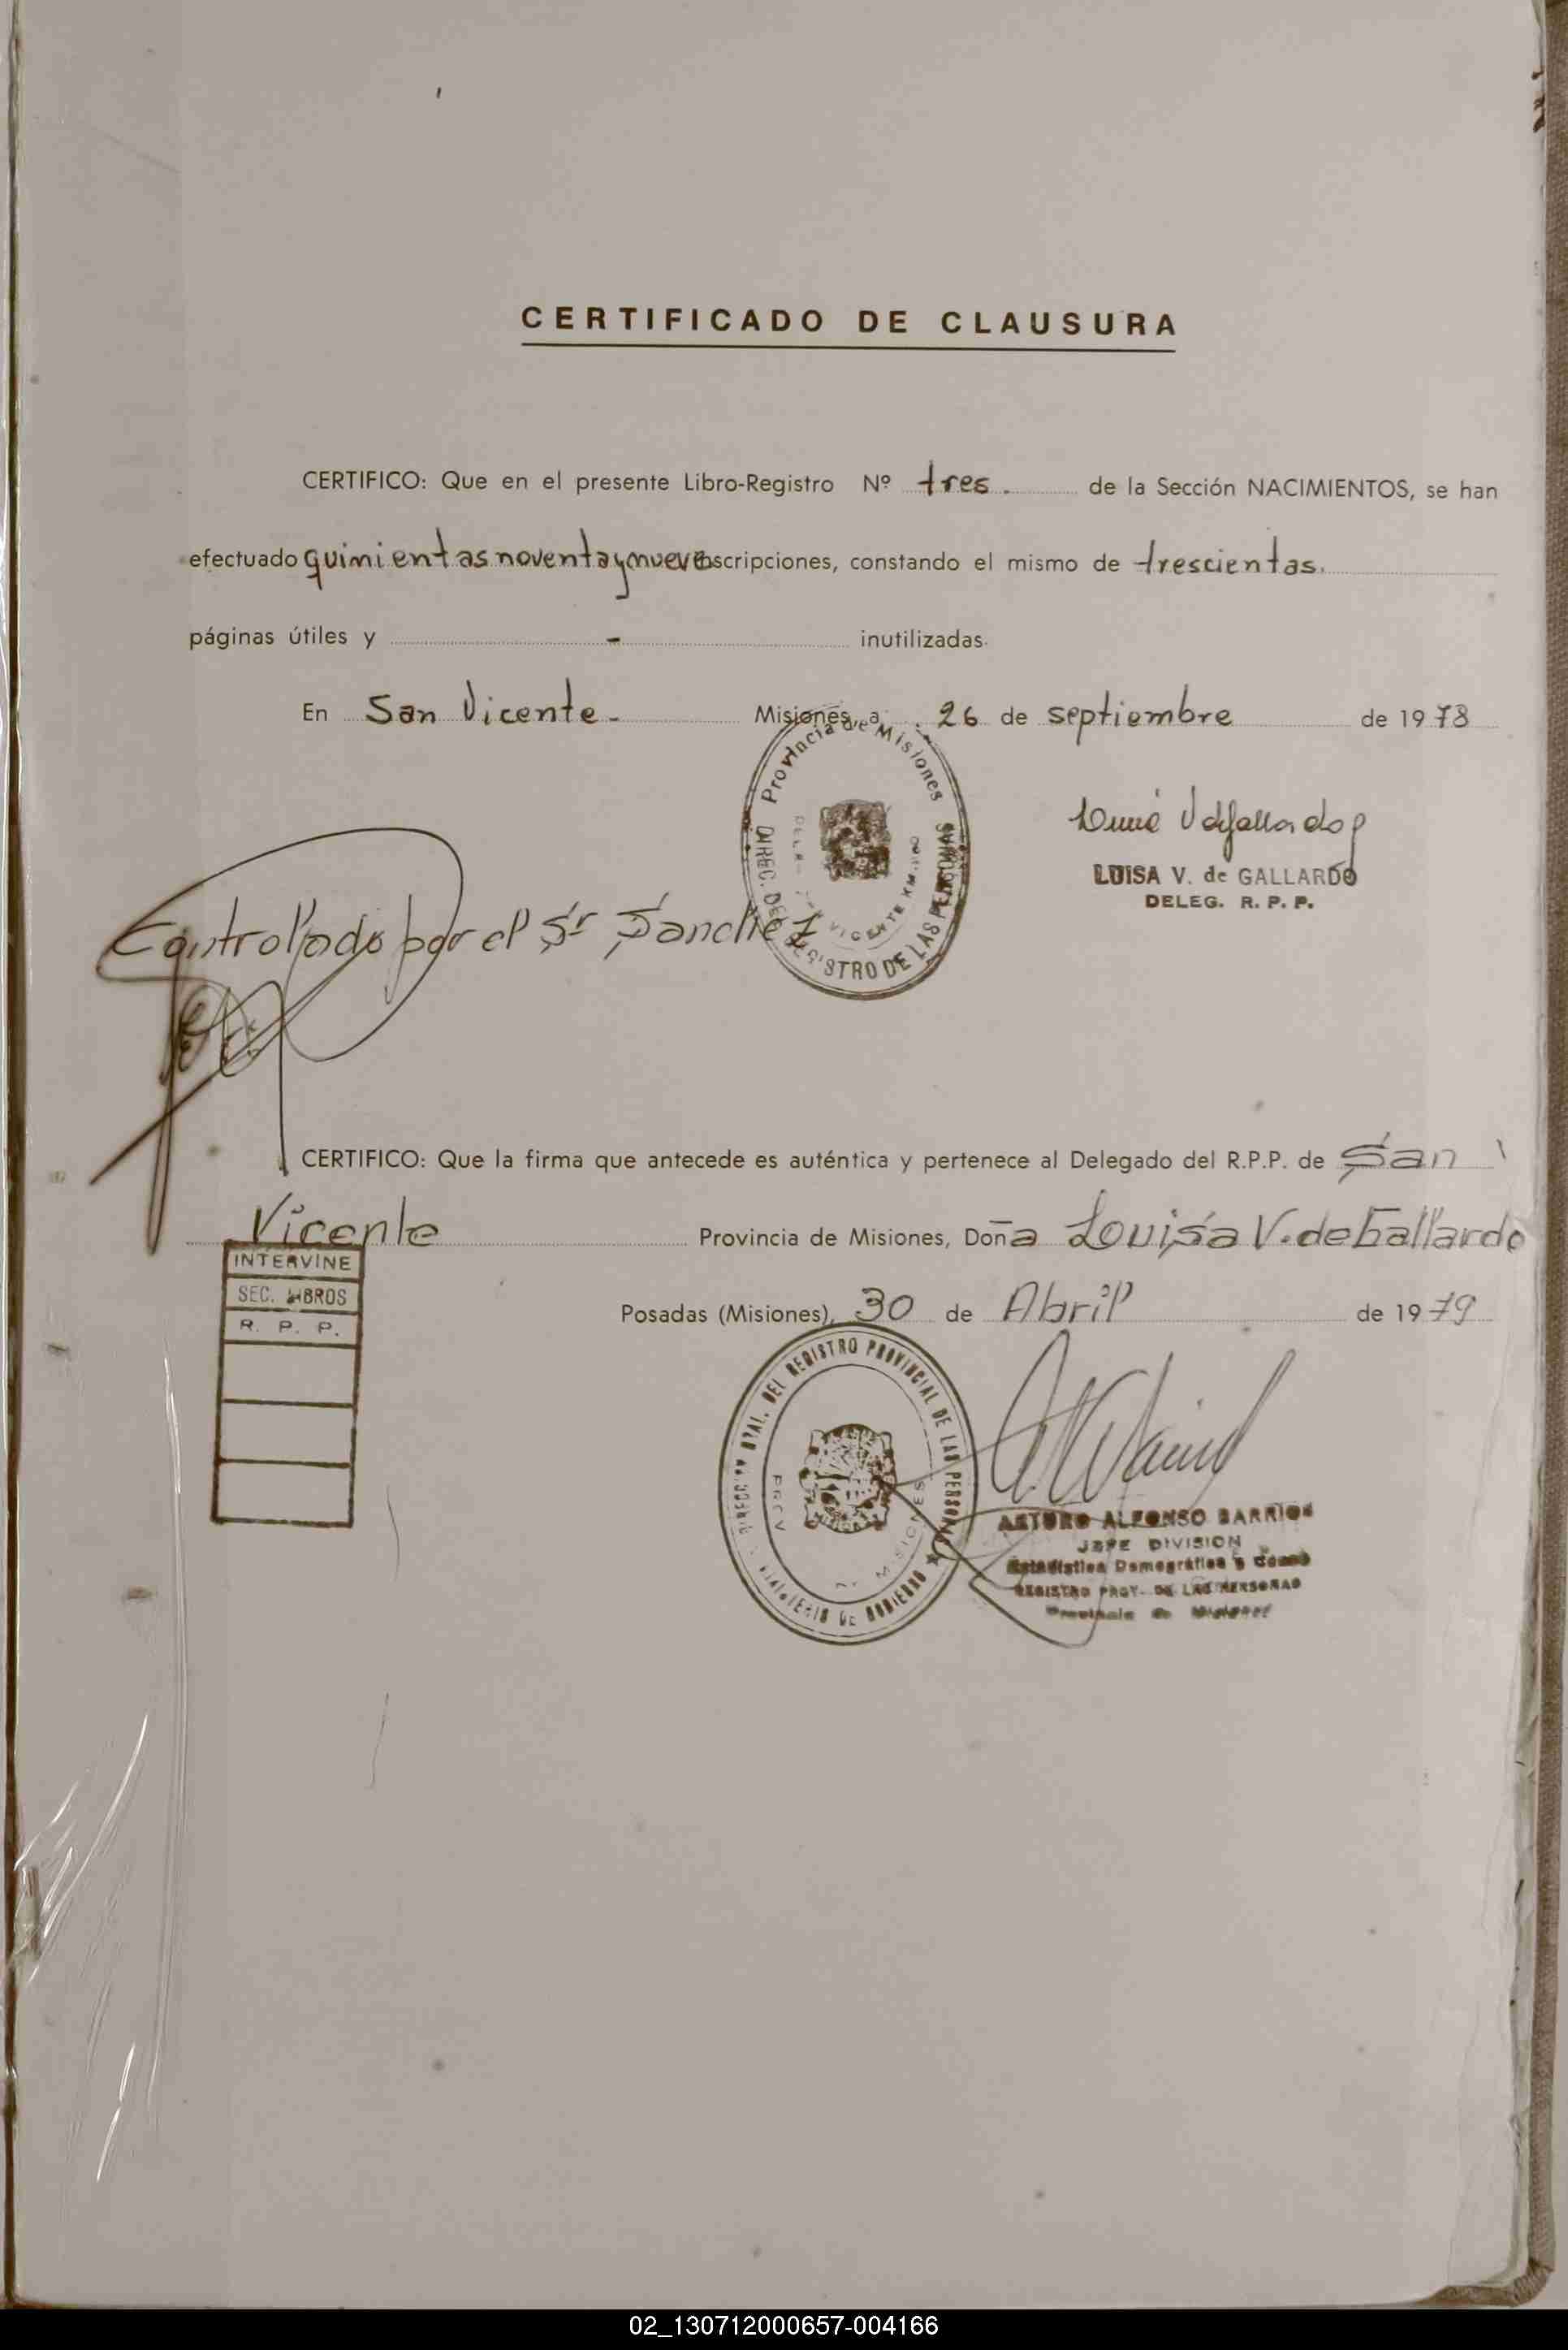 CERTIFICADO DE CLAUSURA
CERTIFICO: Que en el presente Libro-Registro Nº tres. de la Sección NACIMIENTOS, se han
efectuado quinientas noventa y nueve inscripciones, constando el mismo de trescientas.
páginas útiles y - inutilizadas.
En San Vicente. Misiones, a 26 de septiembre de 1978
Provincia de Misiones
DIREC. DEL REGISTRO DE LAS PERSONAS
VICENTE KM.
LUISA V. de GALLARDO
DELEG. R. P. P.
Controlado por el Sr Sanchez
CERTIFICO: Que la firma que antecede es auténtica y pertenece al Delegado del R.P.P. de San
Vicente Provincia de Misiones, Doña Louisa V. de Gallardo
INTERVINE
SEC. LIBROS
R. P. P.
Posadas (Misiones), 30 de Abril de 1979
DIRECCION GRAL. DEL REGISTRO PROVINCIAL DE LAS PERSONAS
MINISTERIO DE GOBIERNO
PROV. DE MISIONES
ARTURO ALFONSO BARRIOS
JEFE DIVISION
Estadística Demográfica y
REGISTRO PROV. DE LAS PERSONAS
Provincia de Misiones
02_130712000657-004166